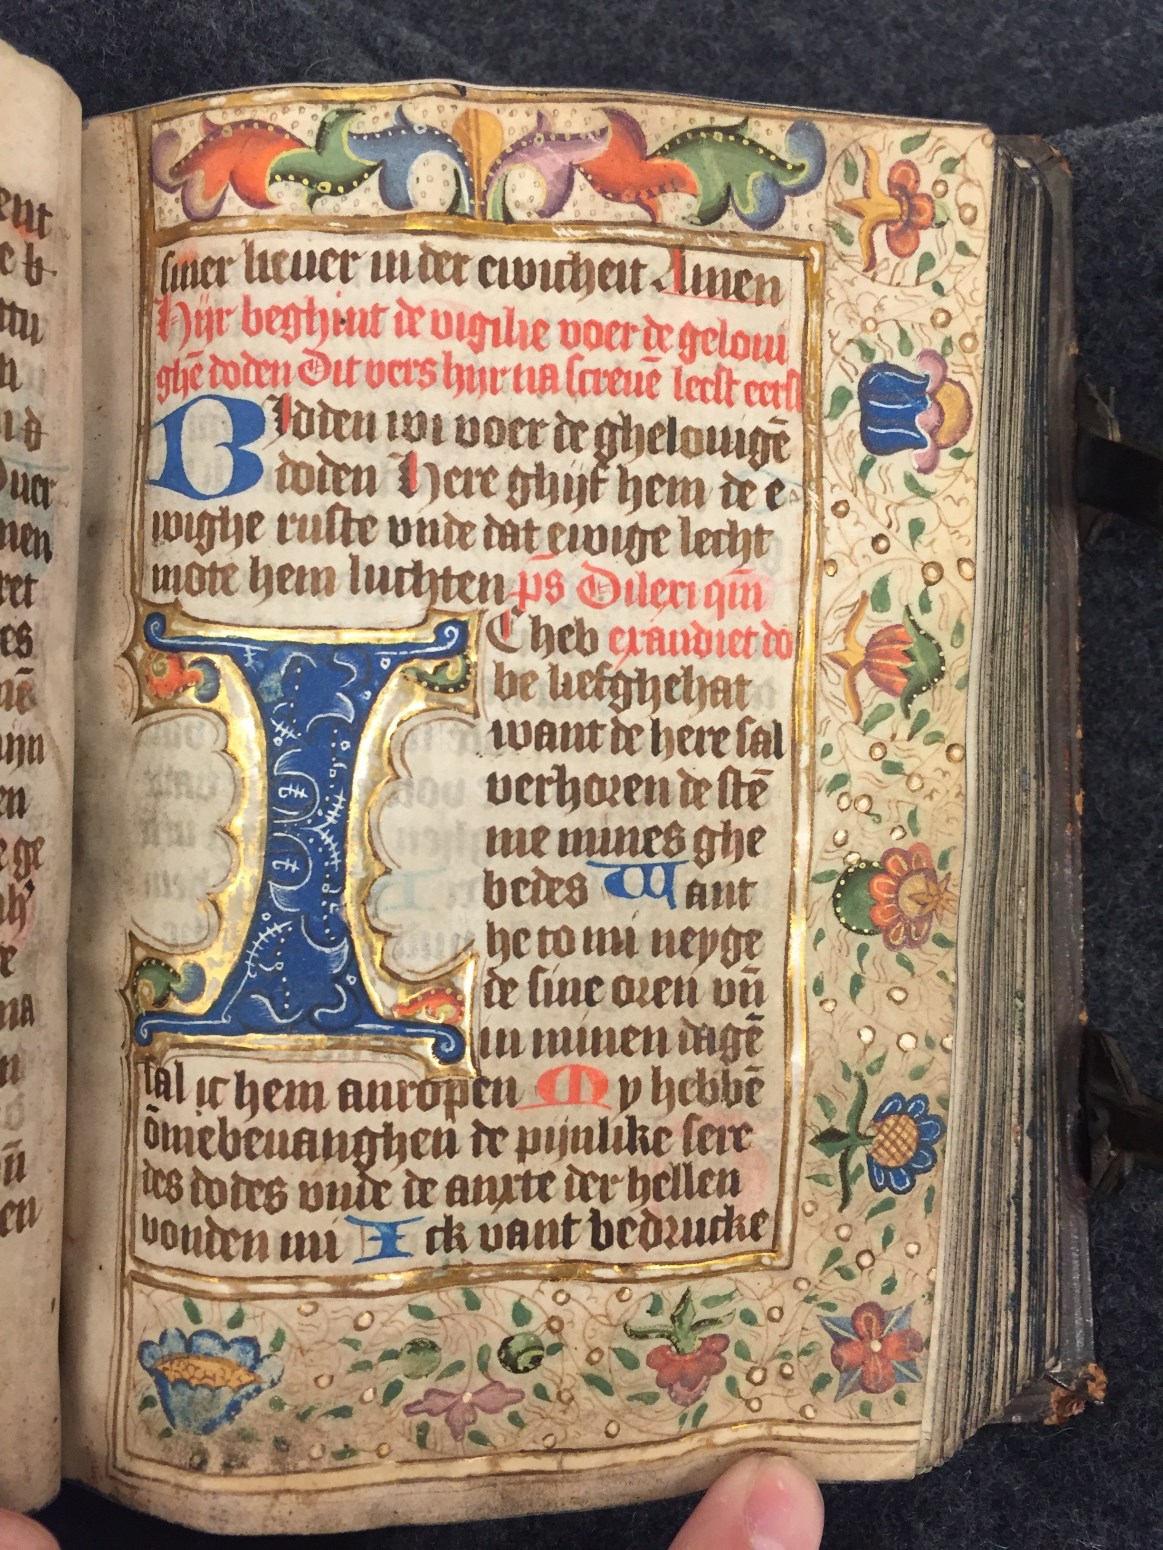 ent
e b
ttu
n
uer
nen
ret
es
nē
ijn
en
e ge
re
na
n
uū
en
siner lieuer in der ewicheit Amen
Hijr beghint de vigilie voer de geloui
ghē doden Dit vers hijr na screuē leest eerst
BIdden wi voer de ghelouigē
doden Here ghijf hem de e
wighe ruste vnde dat ewige lecht
mote hem luchten p̄s Dilexi qm̄
ICk heb exaudiet do
be liefghehat
want de here sal
verhoren de stē
me mines ghe
bedes Want
he to mi neyge
de sine oren vn̄
in minen dagē
sal ic hem anropen My hebbē
ōmebeuanghen de pijnlike sere
des dodes vnde de anxte der hellen
vonden mi Ick vant bedrucke